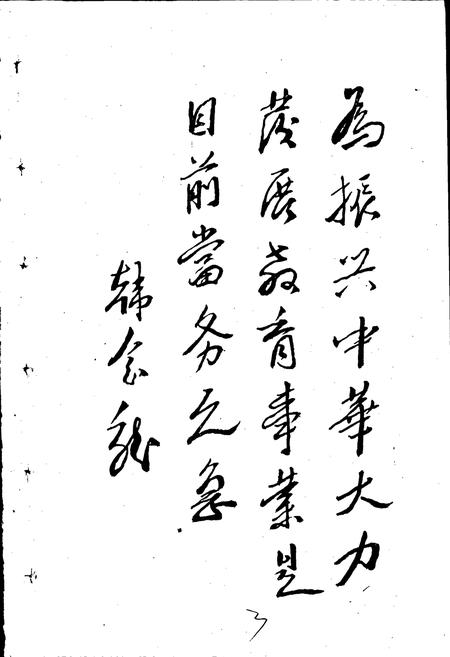 為振兴中華大力
发展教育事業是
目前當务之急
韩念龙
3